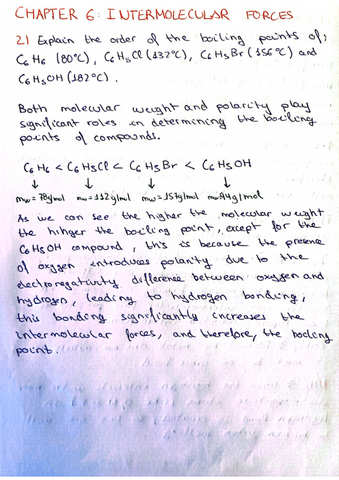 CHAPTER 6: INTERMOLECULAR FORCES
2.) Explain the order of the boiling points of;
C6H6 (80°C), C6H5Cl (132°C), C6H5Br (156°C) and
C6H5OH (182°C).
Both molecular weight and polarity play
significant roles in determining the boiling
points of compounds.
C6H6 < C6H5Cl < C6H5Br < C6H5OH
↓ ↓ ↓ ↓
mw=78g/mol mw=112g/mol mw=157g/mol mw=94g/mol
As we can see the higher the molecular weight
the hihger the boiling point, except for the
C6H5OH compound, this is because the presence
of oxygen introduces polarity due to the
electronegativity difference between oxygen and
hydrogen, leading to hydrogen bonding,
this bonding significantly increases the
intermolecular forces, and therefore, the boiling
point.